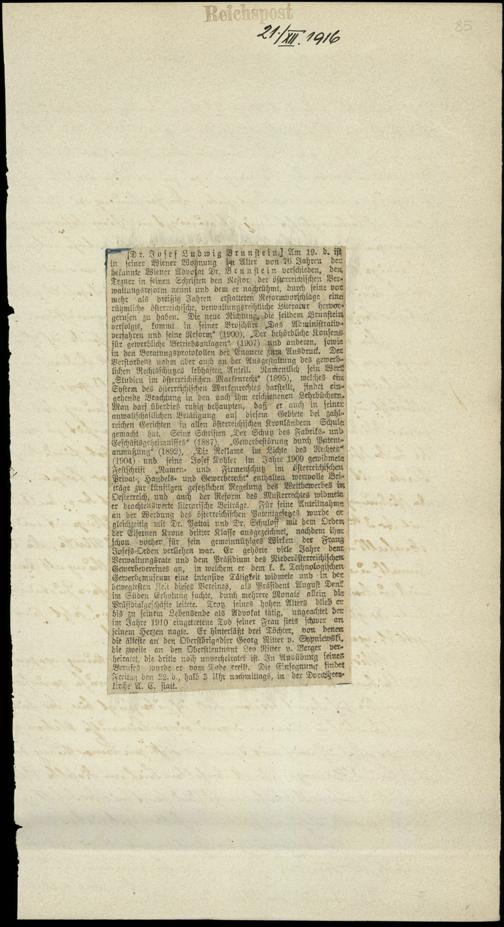 Reichspost
21./XII. 1916
85
[Dr. Josef Ludwig Brunstein.] Am 19. d. ist
in seiner Wiener Wohnung im Alter von 76 Jahren der
bekannte Wiener Advokat Dr. Brunstein verschieden, den
Tezner in seinen Schriften den Nestor der österreichischen Ver-
waltungsreform nennt und dem er nachrühmt, durch seine vor
mehr als dreißig Jahren erstatteten Reformvorschläge eine
rühmliche österreichische, verwaltungsrechtliche Literatur hervor-
gerufen zu haben. Die neue Richtung, die seitdem Brunstein
verfolgte, kommt in seiner Broschüre „Das Administrativ-
verfahren und seine Reform“ (1900), „Der behördliche Konsens
für gewerbliche Betriebsanlagen“ (1907) und anderen, sowie
in den Beratungsprotokollen der Enquete zum Ausdruck. Der
Verstorbene nahm aber auch an der Ausgestaltung des gewerb-
lichen Rechtsschutzes lebhaften Anteil. Namentlich sein Werk
„Studien im österreichischen Markenrecht“ (1895), welches ein
System des österreichischen Markenrechtes darstellt, findet ein-
gehende Beachtung in den nach ihm erschienenen Lehrbüchern.
Man darf überdies ruhig behaupten, daß er auch in seiner
anwaltschaftlichen Betätigung auf diesem Gebiete bei zahl-
reichen Gerichten in allen österreichischen Kronländern Schule
gemacht hat. Seine Schriften „Der Schutz des Fabriks- und
Geschäftsgeheimnisses“ (1887), „Gewerbestörung durch Patent-
anmaßung“ (1892), „Die Reklame im Lichte des Rechtes“
(1904) und seine Josef Kohler im Jahre 1909 gewidmete
Festschrift „Namen- und Firmenschutz im österreichischen
Privat-, Handels- und Gewerberecht“ enthalten wertvolle Bei-
träge zur künftigen gesetzlichen Regelung des Wettbewerbes in
Oesterreich, und auch der Reform des Musterrechtes widmete
er beachtenswerte literarische Beiträge. Für seine Anteilnahme
an der Werbung des österreichischen Patentgesetzes wurde er
gleichzeitig mit Dr. Pattai und Dr. Schuloff mit dem Orden
der Eisernen Krone dritter Klasse ausgezeichnet, nachdem ihm
schon vorher für sein gemeinnütziges Wirken der Franz
Josefs-Orden verliehen war. Er gehörte viele Jahre dem
Verwaltungsrate und dem Präsidium des Niederösterreichischen
Gewerbevereines an, in welchem er dem k. k. Technologischen
Gewerbemuseum eine intensive Tätigkeit widmete und in der
bewegtesten Zeit dieses Vereines, als Präsident August Denk
im Süden Erholung suchte, durch mehrere Monate allein die
Präsidialgeschäfte leitete. Trotz seines hohen Alters blieb er
bis zu seinem Lebensende als Advokat tätig, ungeachtet der
im Jahre 1910 eingetretene Tod seiner Frau stets schwer an
seinem Herzen nagte. Er hinterläßt drei Töchter, von denen
die älteste an den Oberstbrigadier Georg Ritter v. Sypniewski,
die zweite an den Oberstleutnant Leo Ritter v. Berger ver-
heiratet, die dritte noch unverheiratet ist. In Ausübung seines
Berufes wurde er vom Tode ereilt. Die Einsegnung findet
Freitag den 22. d., halb 3 Uhr nachmittags, in der Dorotheer-
kirche A. C. statt.